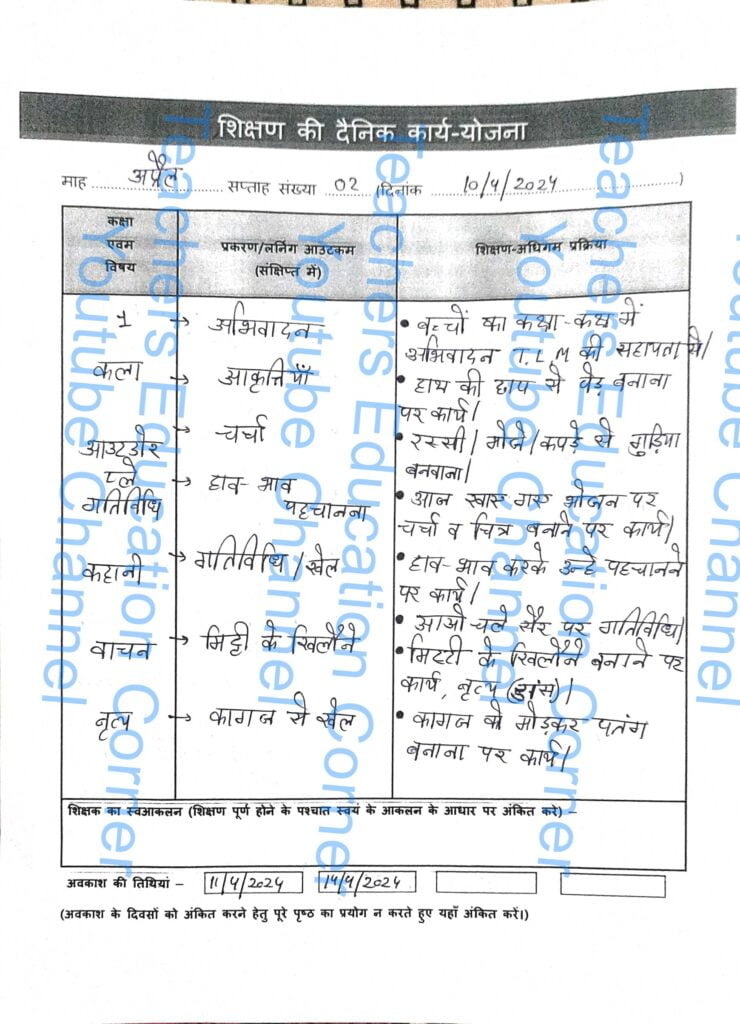 शिक्षण की दैनिक कार्य-योजना
माह अप्रैल सप्ताह संख्या 02 (दिनांक 10/4/2024)
कक्षा
एवम
विषय
प्रकरण/लर्निंग आउटकम
(संक्षिप्त में)
शिक्षण-अधिगम प्रक्रिया
1
कला
आउटडोर
प्ले
गतिविधि
कहानी
वाचन
नृत्य
→ अभिवादन
→ आकृतियाँ
→ चर्चा
→ हाव-भाव
पहचानना
→ गतिविधि/खेल
→ मिट्टी के खिलौने
→ कागज से खेल
• बच्चों का कक्षा-कक्ष में
अभिवादन T.L.M की सहायता से।
• हाथ की छाप से पेड़ बनाना
पर कार्य।
• रस्सी/मोजे/कपड़े से गुड़िया
बनवाना।
• आज खाए गए भोजन पर
चर्चा व चित्र बनाने पर कार्य।
• हाव-भाव करके उन्हे पहचानने
पर कार्य।
• आओ चले सैर पर गतिविधि।
• मिटटी के खिलौने बनाने पर
कार्य, नृत्य
• कागज को मोड़कर पतंग
बनाना पर कार्य।
शिक्षक का स्वआकलन (शिक्षण पूर्ण होने के पश्चात स्वयं के आकलन के आधार पर अंकित करें) –
अवकाश की तिथियां – 11/4/2024 14/4/2024
(अवकाश के दिवसों को अंकित करने हेतु पूरे पृष्ठ का प्रयोग न करते हुए यहाँ अंकित करें।)
Teachers Education Corner
Youtube Channel
Teachers Education Corner
Youtube Channel
Teachers Education Corner
Youtube Channel